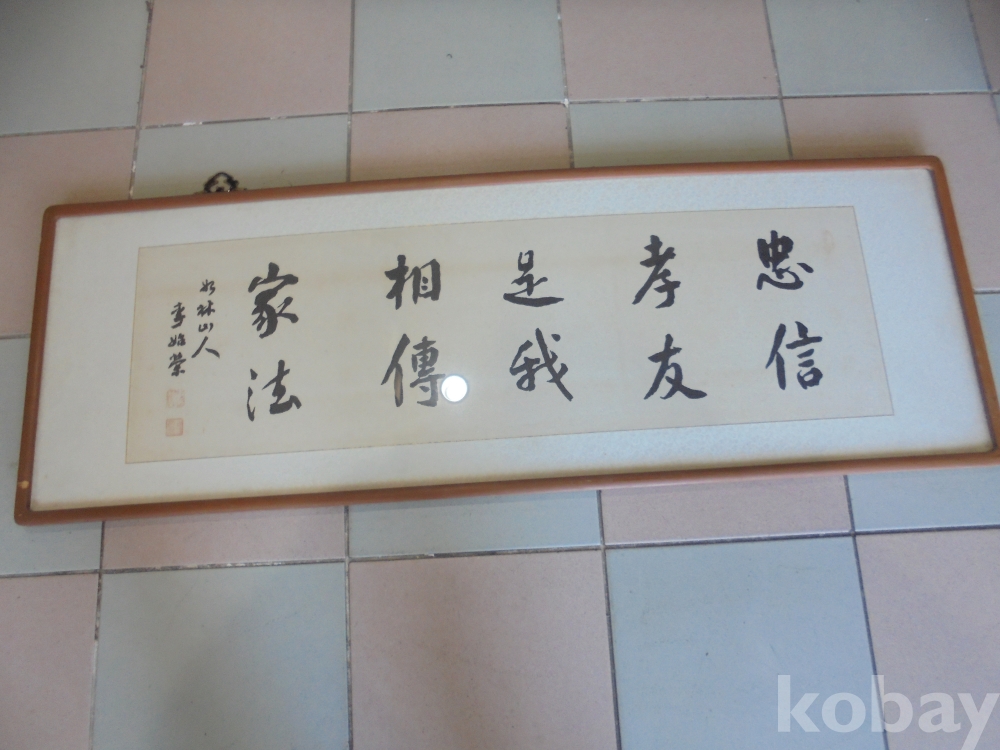 忠信
孝友
是我
相傳
家法
如林山人
李始榮
kobay